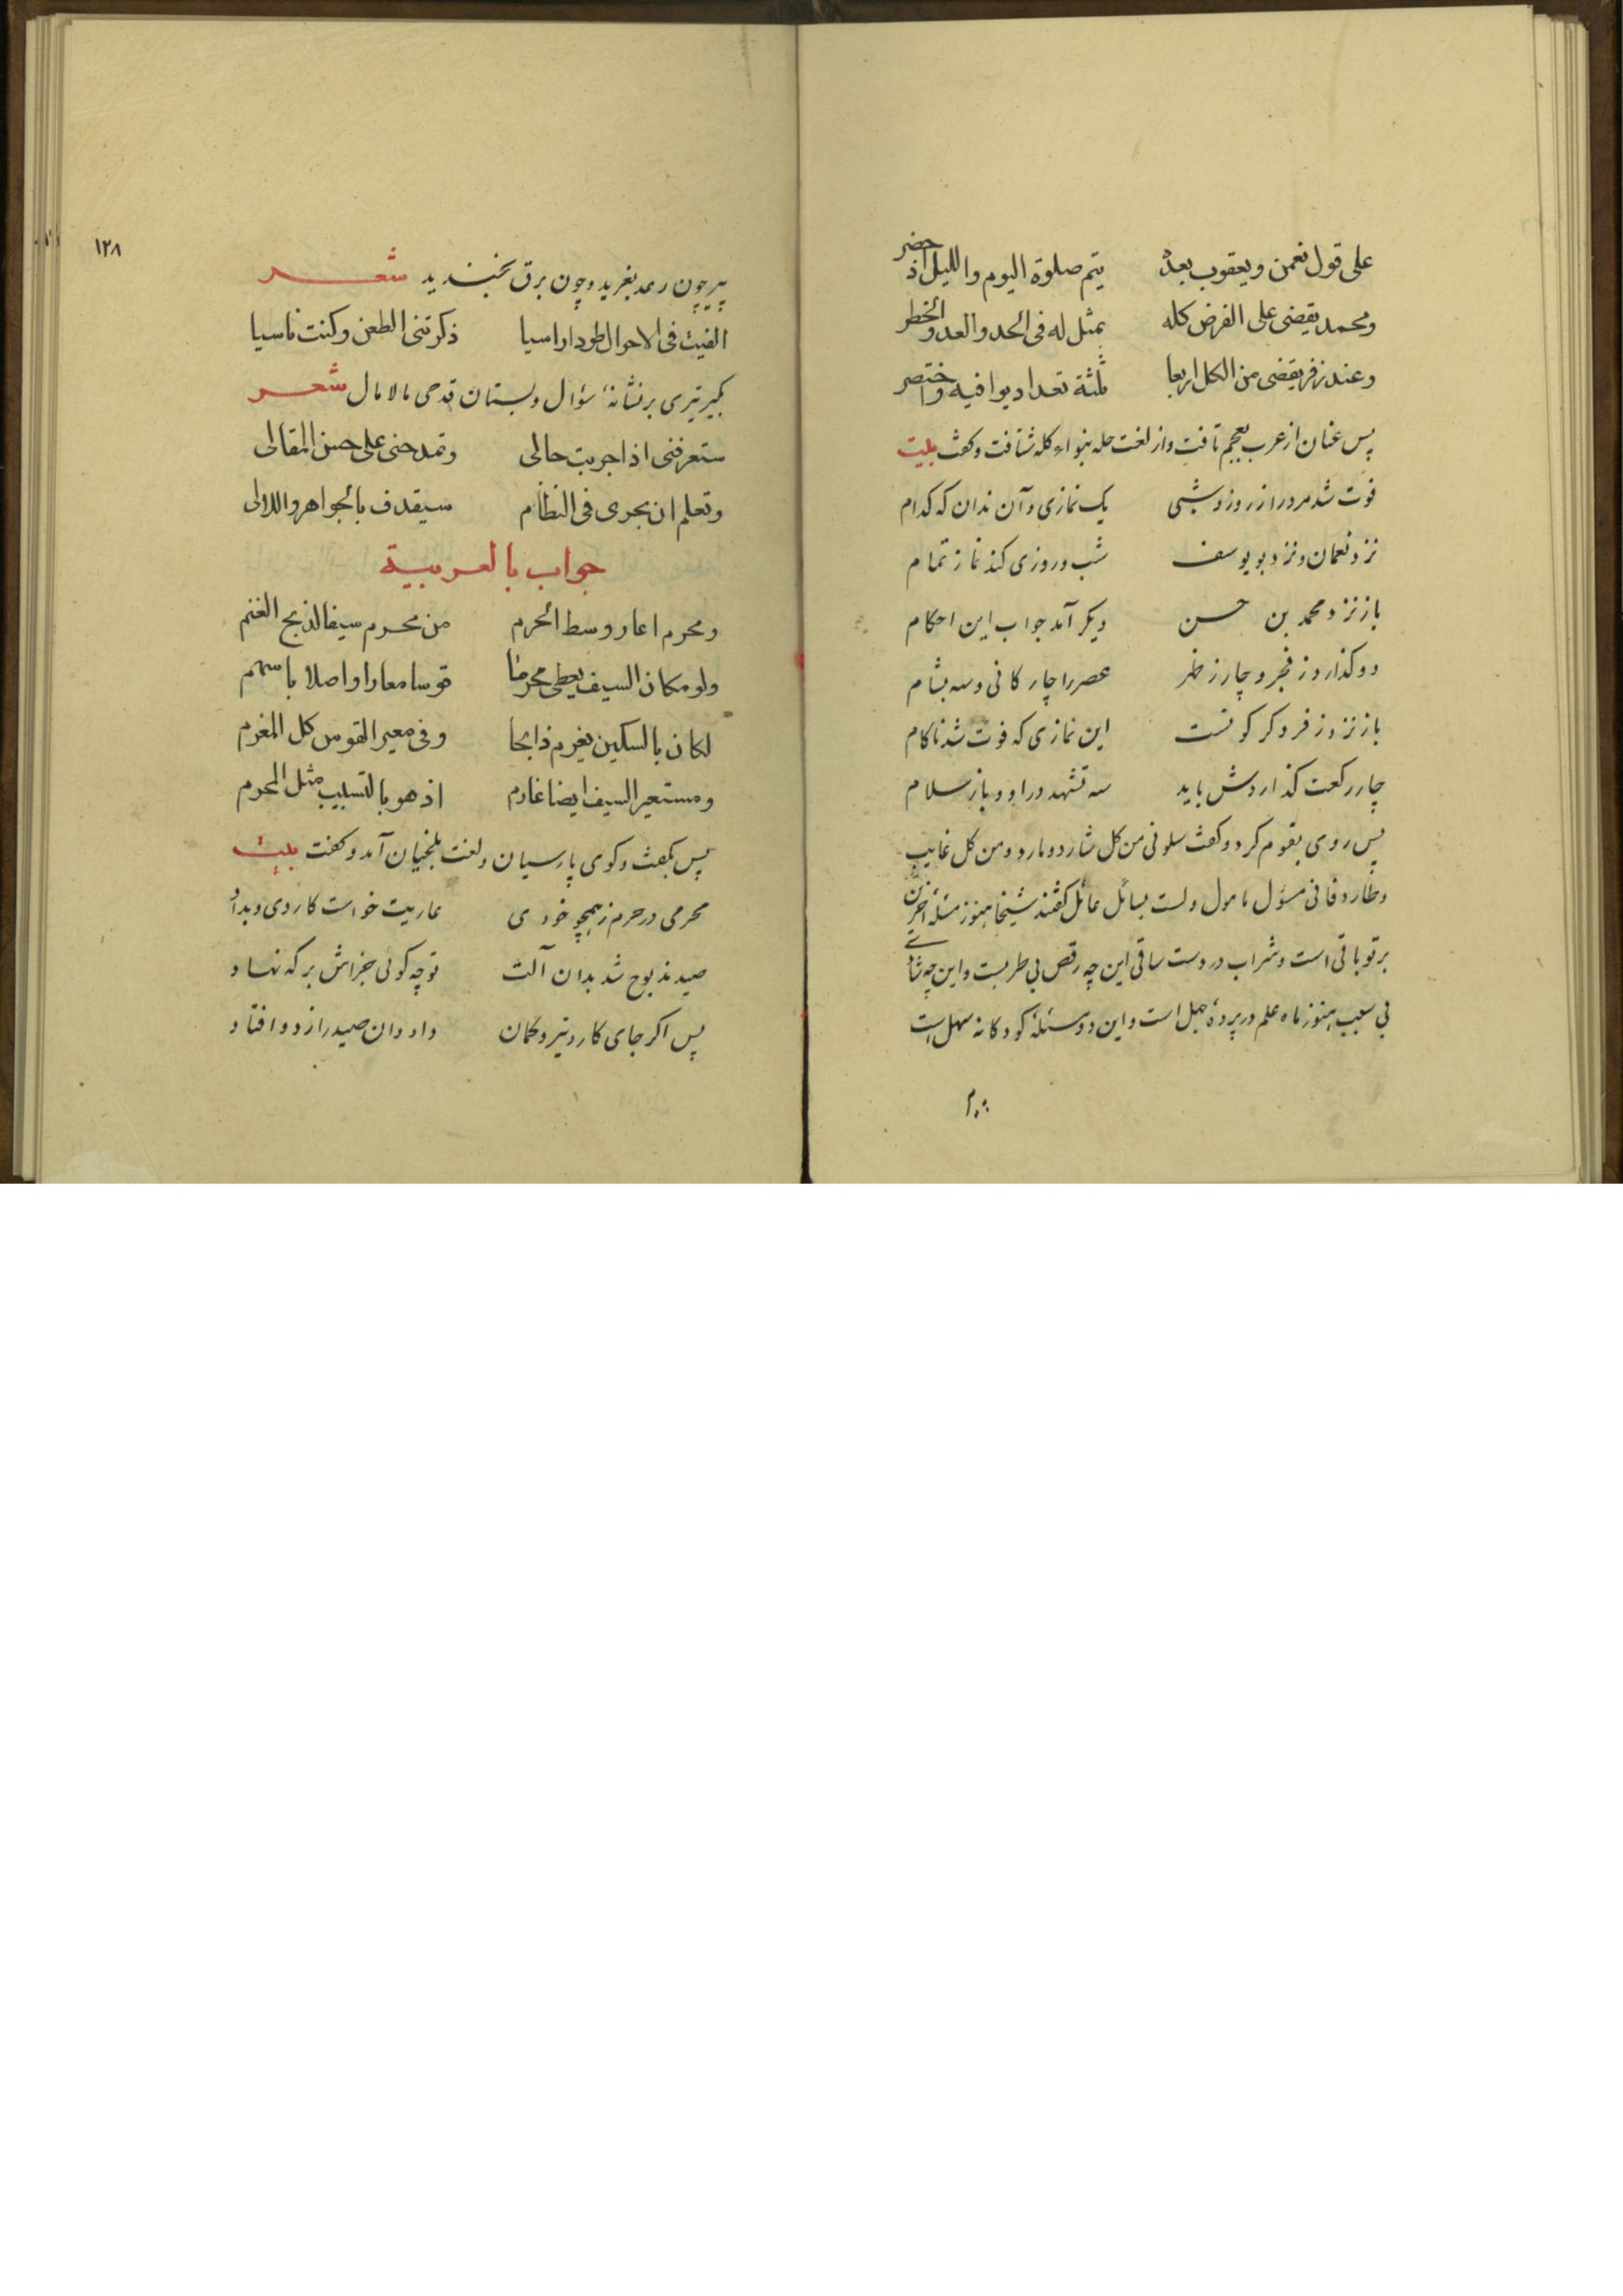 على قول نعمن ويعقوب بعدهُ يتم صلوة اليوم والليل اذ حضر
ومحمد يقضى على الفرض كله بمثل له فى الحد والعد والخطر
وعند زفر يقضى من الكل اربعا ثلثة تعداد يوافيه واختصر
پس عنان از عرب بعجم تافت واز لغت حله بنواء کله شتافت وکفت بیت
فوت شد مرد را ز روز وشبی یک نمازی وآن نداند که کدام
نزد نعمان ونزد بو یوسف شب وروزی کند نماز تمام
باز نزد محمد بن حسن دیکر آمد جواب این احکام
دو کذارد ز فجر و چار ز ظهر عصر را چار کانی وسه بشام
باز نزد زفر دکر کونست این نمازی که فوت شد ناکام
چار رکعت کذاردش باید سه تشهد در او و باز سلام
پس روی بقوم کرد وکفت سلونی من کل شارد ومارد ومن کل غایب
وطارد فانی مسؤل مامول ولست بسائل عائل کفتند شیخا هنوز مسئله آخرین
بر تو باقی است وشراب در دست ساقی این چه رقص بی طربست واین چه شادی
بی سبب هنوز ماه علم در پردۀ جهل است واین دو مسئلۀ کودکانه سهل است
۱۲۸
پیر چون رعد بغرید وچون برق بخندید شعر
الفيت فى الاحوال طودا راسيا ذكرتنى الطعن وكنت ناسيا
بکیر تیری بر نشانۀ سؤال وبستان قدحی مالامال شعر
ستعرفنى اذا جربت حالى وتمدحنى على حسن المقالى
وتعلم ان بحرى فى النظام سيقذف بالجواهر واللالى
جواب بالعربية
ومحرم اعار وسط الحرم من محرم سيفا لذبح الغنم
ولو مكان السيف يعطى محرما قوسا معارا واصلا باسهم
لكان بالسكين يغرم ذابحا وفى معير القوس كل المغرم
ومستعير السيف ايضا غارم اذ هو بالتسبيب مثل المحرم
پس بکفت وکوی پارسیان ولغت بلخیان آمد وکفت بیت
محرمی در حرم ز همچو خودی عاریت خواست کاردی وبداد
صید مذبوح شد بدان آلت تو چه کوئی جزاش بر که نهاد
پس اکر جای کارد تیر وکمان داد وان صید را ز دو افتاد